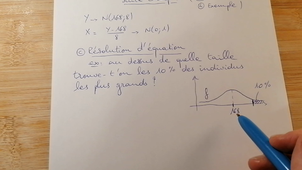 ② Exemple !
Y → N(168,8)
X = Y-168 / 8 → N(0,1)
© Résolution d'équation
ex: au dessus de quelle taille
trouve-t'on les 10% des individus
les plus grands ?
10%
8
168